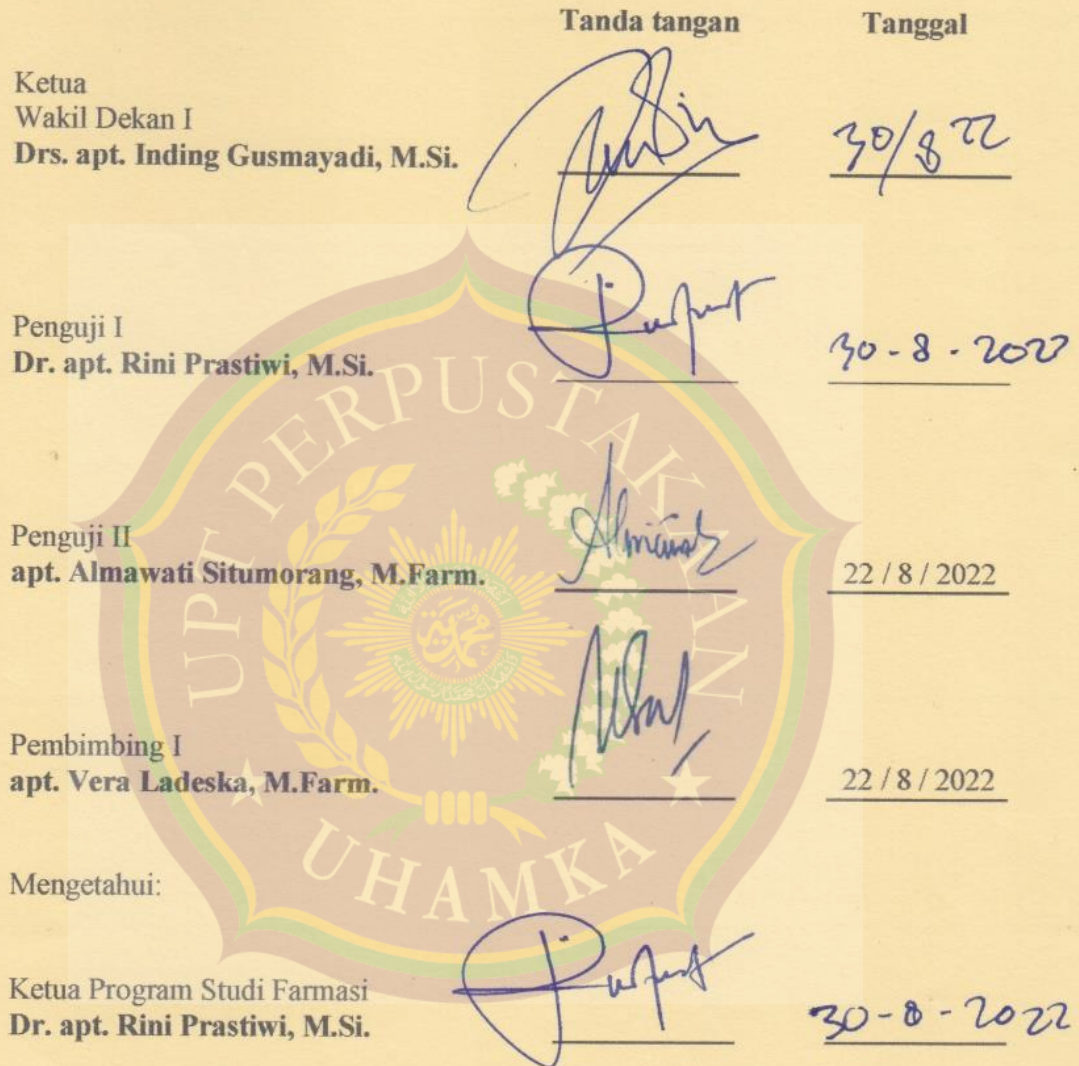 Tanda tangan Tanggal
Ketua
Wakil Dekan I
Drs. apt. Inding Gusmayadi, M.Si. 30/8 22
Penguji I
Dr. apt. Rini Prastiwi, M.Si. 30-8-2022
Penguji II
apt. Almawati Situmorang, M.Farm. 22 / 8 / 2022
Pembimbing I
apt. Vera Ladeska, M.Farm. 22 / 8 / 2022
Mengetahui:
Ketua Program Studi Farmasi
Dr. apt. Rini Prastiwi, M.Si. 30-8-2022
UPT PERPUSTAKAAN
UHAMKA